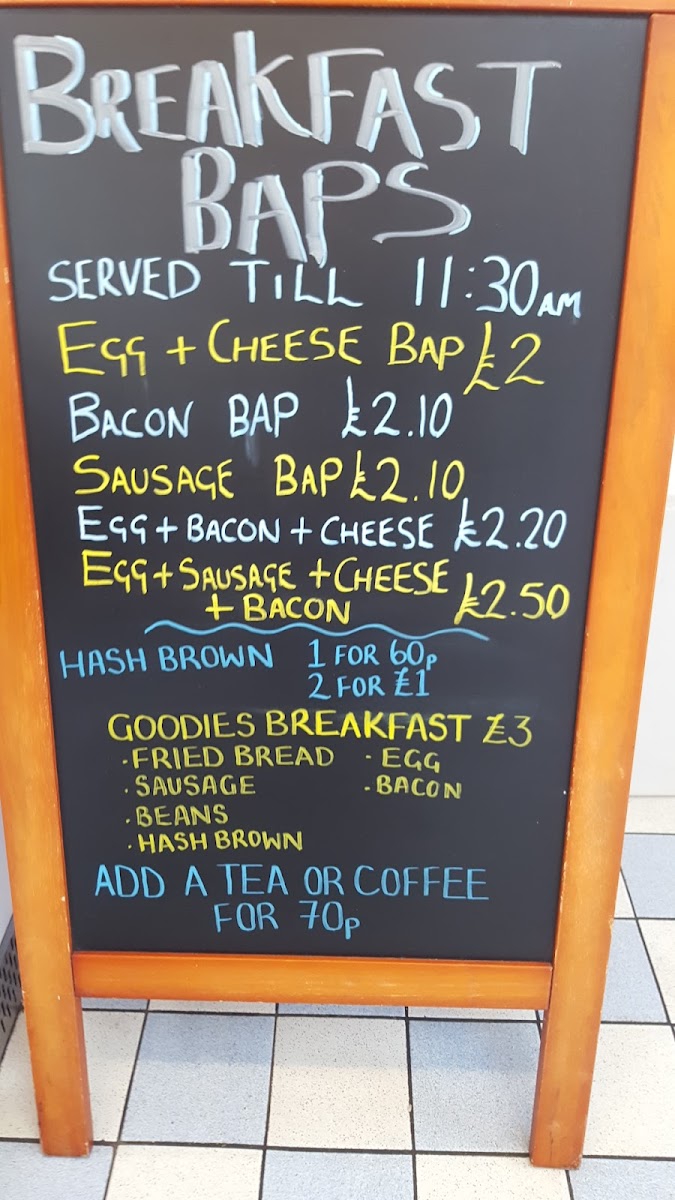 BREAKFAST
BAPS
SERVED TILL 11:30AM
EGG + CHEESE BAP £2
BACON BAP £2.10
SAUSAGE BAP £2.10
EGG + BACON + CHEESE £2.20
EGG + SAUSAGE + CHEESE
+ BACON £2.50
HASH BROWN 1 FOR 60p
2 FOR £1
GOODIES BREAKFAST £3
· FRIED BREAD · EGG
· SAUSAGE · BACON
· BEANS
· HASH BROWN
ADD A TEA OR COFFEE
FOR 70p